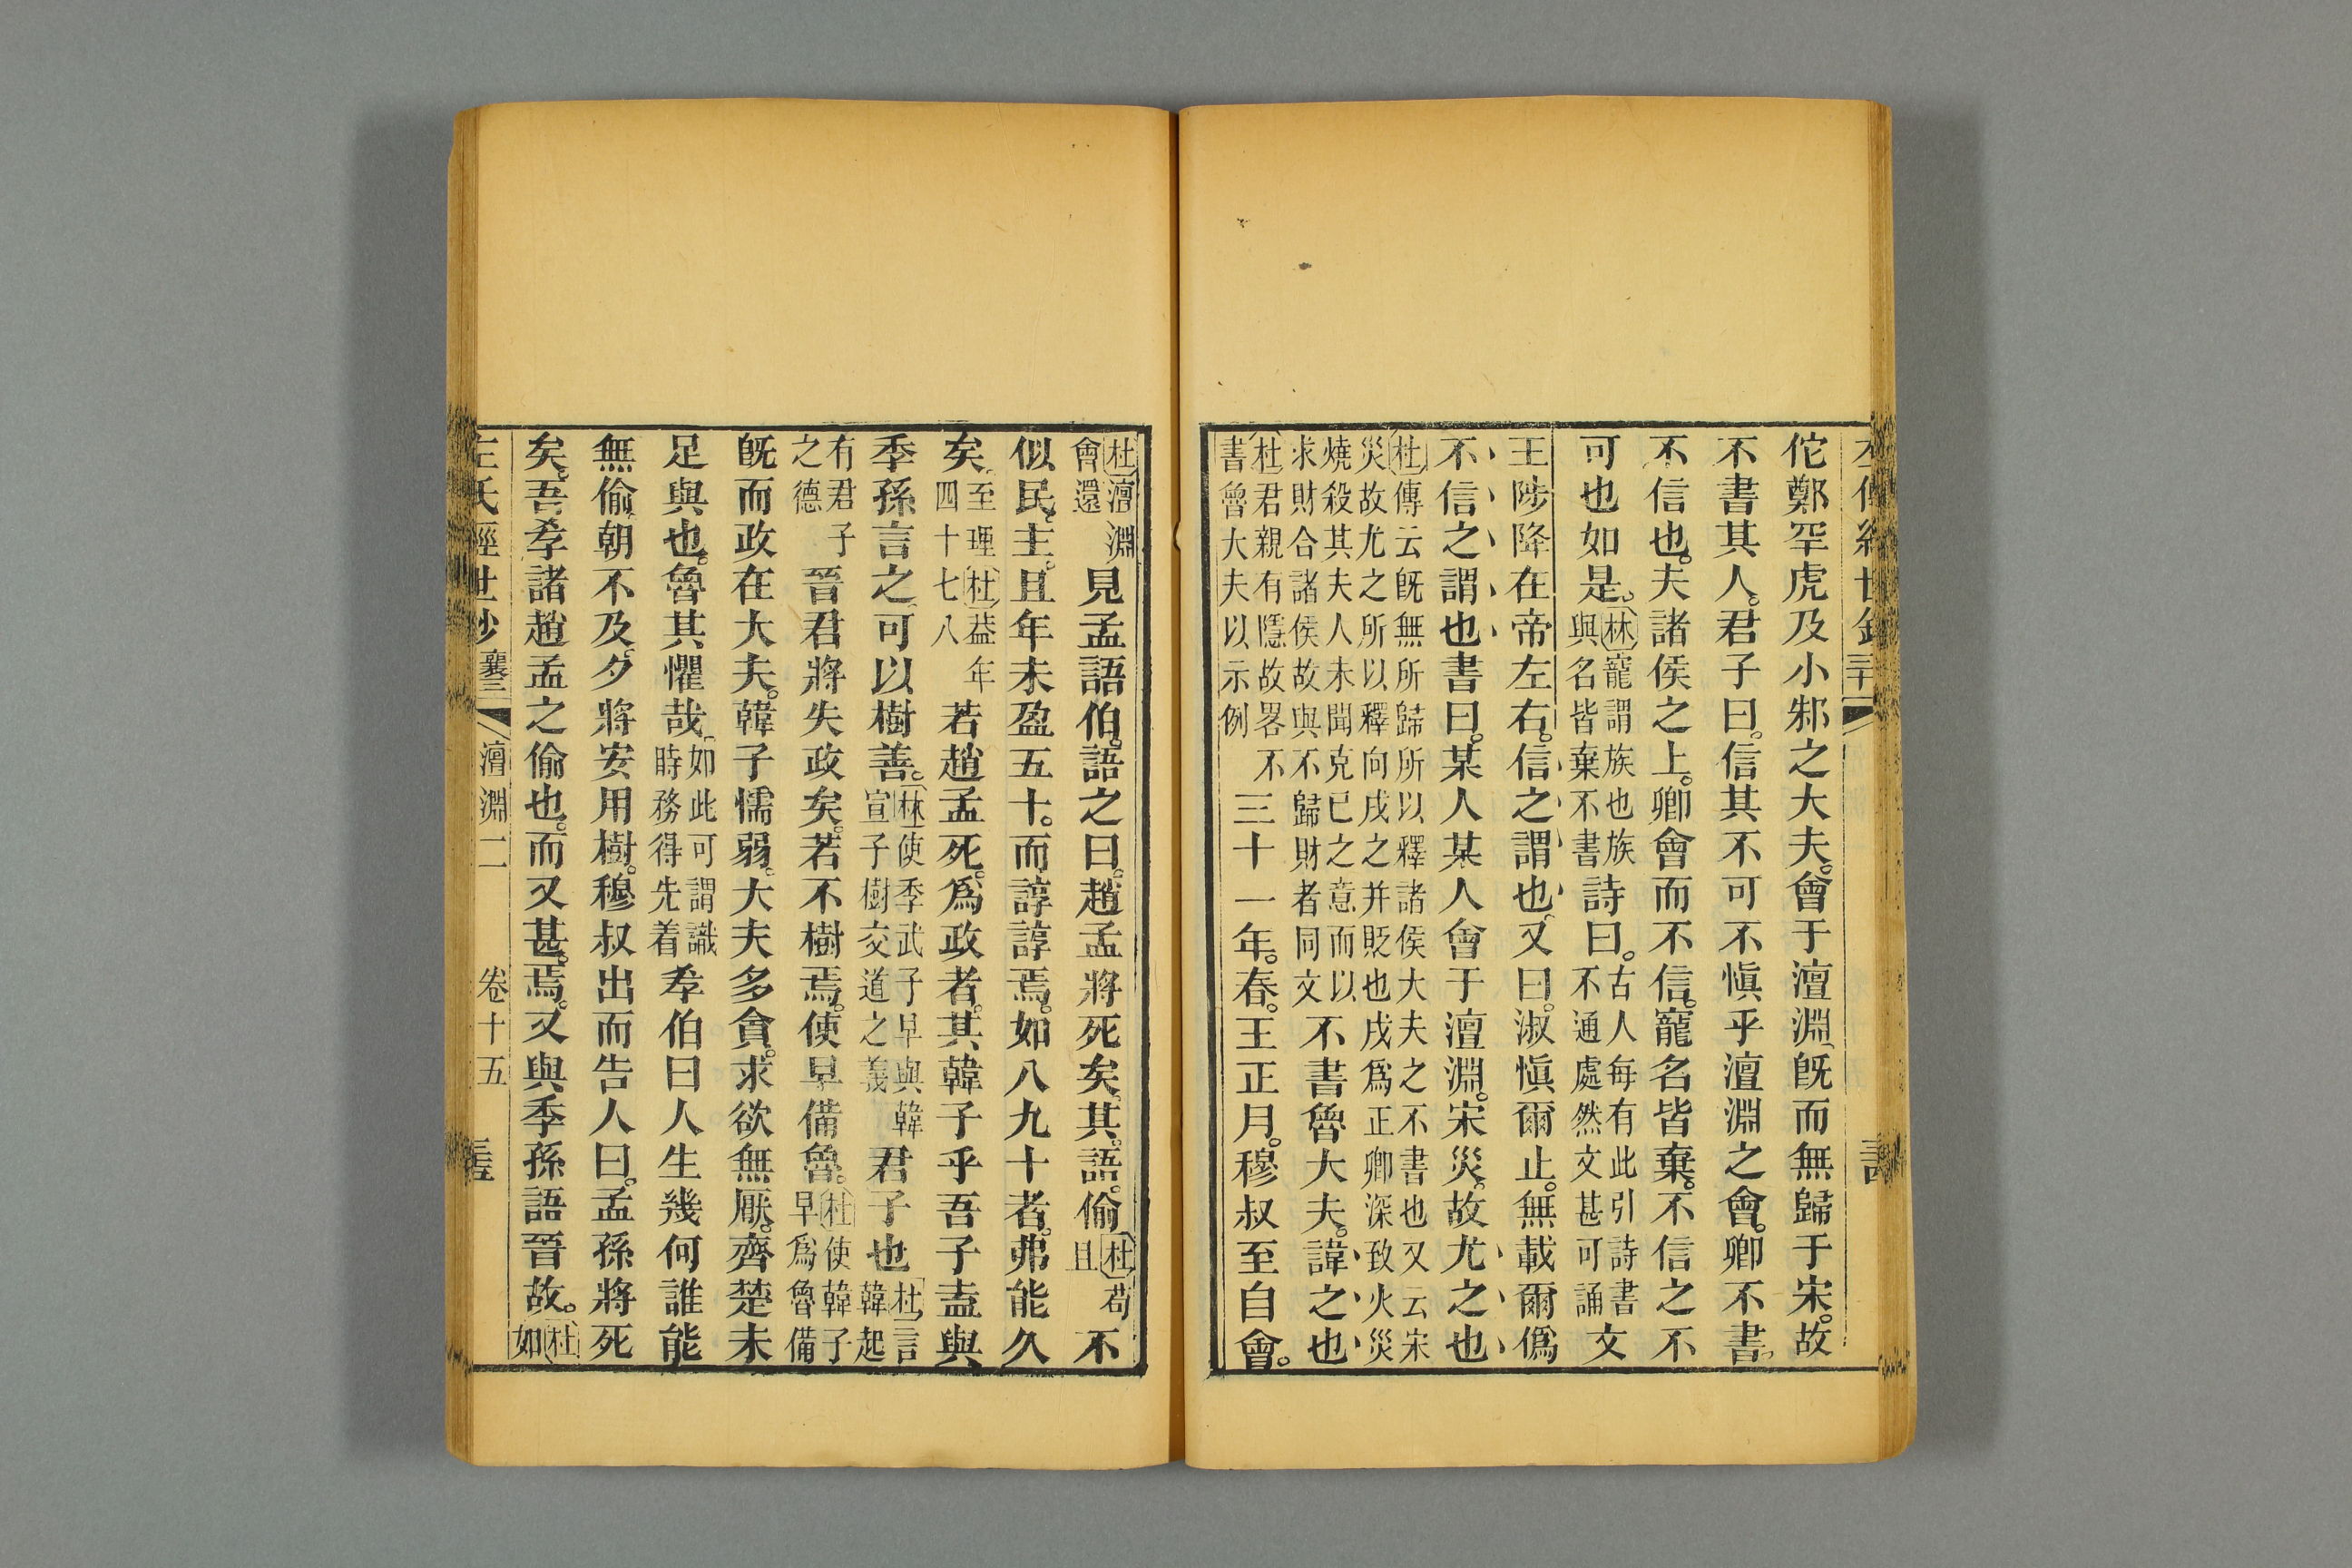 佗鄭罕虎及小邾之大夫。會于澶淵、旣而無歸于宋。故
不書其人。君子曰。信其不可不愼乎澶淵之會。卿不書。
不信也。夫諸侯之上。卿會而不信。寵名皆棄。不信之不
可也如是。林寵謂族也族
與名皆棄不書詩曰。古人每有此引詩書
不通處然文甚可誦文
王陟降在帝左右。信之謂也、又曰。淑愼爾止。無載爾僞
不信之謂也書曰。某人某人會于澶淵。宋災。故尤之也
杜傳云旣無所歸所以釋諸侯大夫之不書也又云宋
災故尤之所以釋向戌之并貶也戌爲正卿深致火災
燒殺其夫人未聞克已之意而以
求財合諸侯故與不歸財者同文不書魯大夫。諱之也
杜君親有隱故畧不
書魯大夫以示例三十一年。春。王正月。穆叔至自會。
杜澶淵
會還見孟語伯。語之曰。趙孟將死矣。其語。偷杜苟
且不
似民主。且年未盈五十。而諄諄焉。如八九十者。弗能久
矣。至理杜益年
四十七八若趙孟死。爲政者。其韓子乎吾子盍與
季孫言之、可以樹善。林使季武子早與韓
宣子樹交道之義君子也杜言
韓起
有君子
之德晉君將失政矣。若不樹焉。使早備魯。杜使韓子
早爲魯備
旣而政在大夫。韓子懦弱。大夫多貪。求欲無厭。齊楚未
足與也。魯其懼哉、如此可謂識
時務得先着孝伯曰人生幾何誰能
無偷、朝不及。夕將安用樹。穆叔出而告人曰。孟孫將死
矣。吾孝諸趙孟之偷也。而又甚。焉。又與季孫語晉故。杜
如
左氏經世鈔 襄三 澶淵二 卷十五